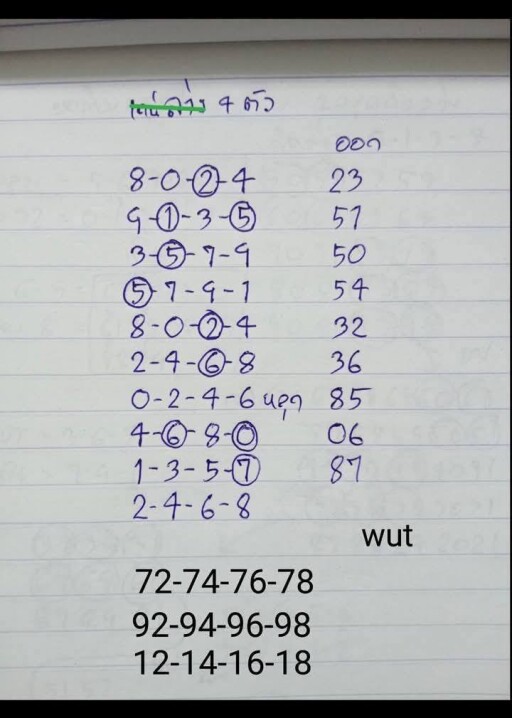 เด่นล่าง 4 ตัว
ออก
8-0-2-4 23
9-1-3-5 51
3-5-7-9 50
5-7-9-1 54
8-0-2-4 32
2-4-6-8 36
0-2-4-6 หลุด 85
4-6-8-0 06
1-3-5-7 87
2-4-6-8
wut
72-74-76-78
92-94-96-98
12-14-16-18